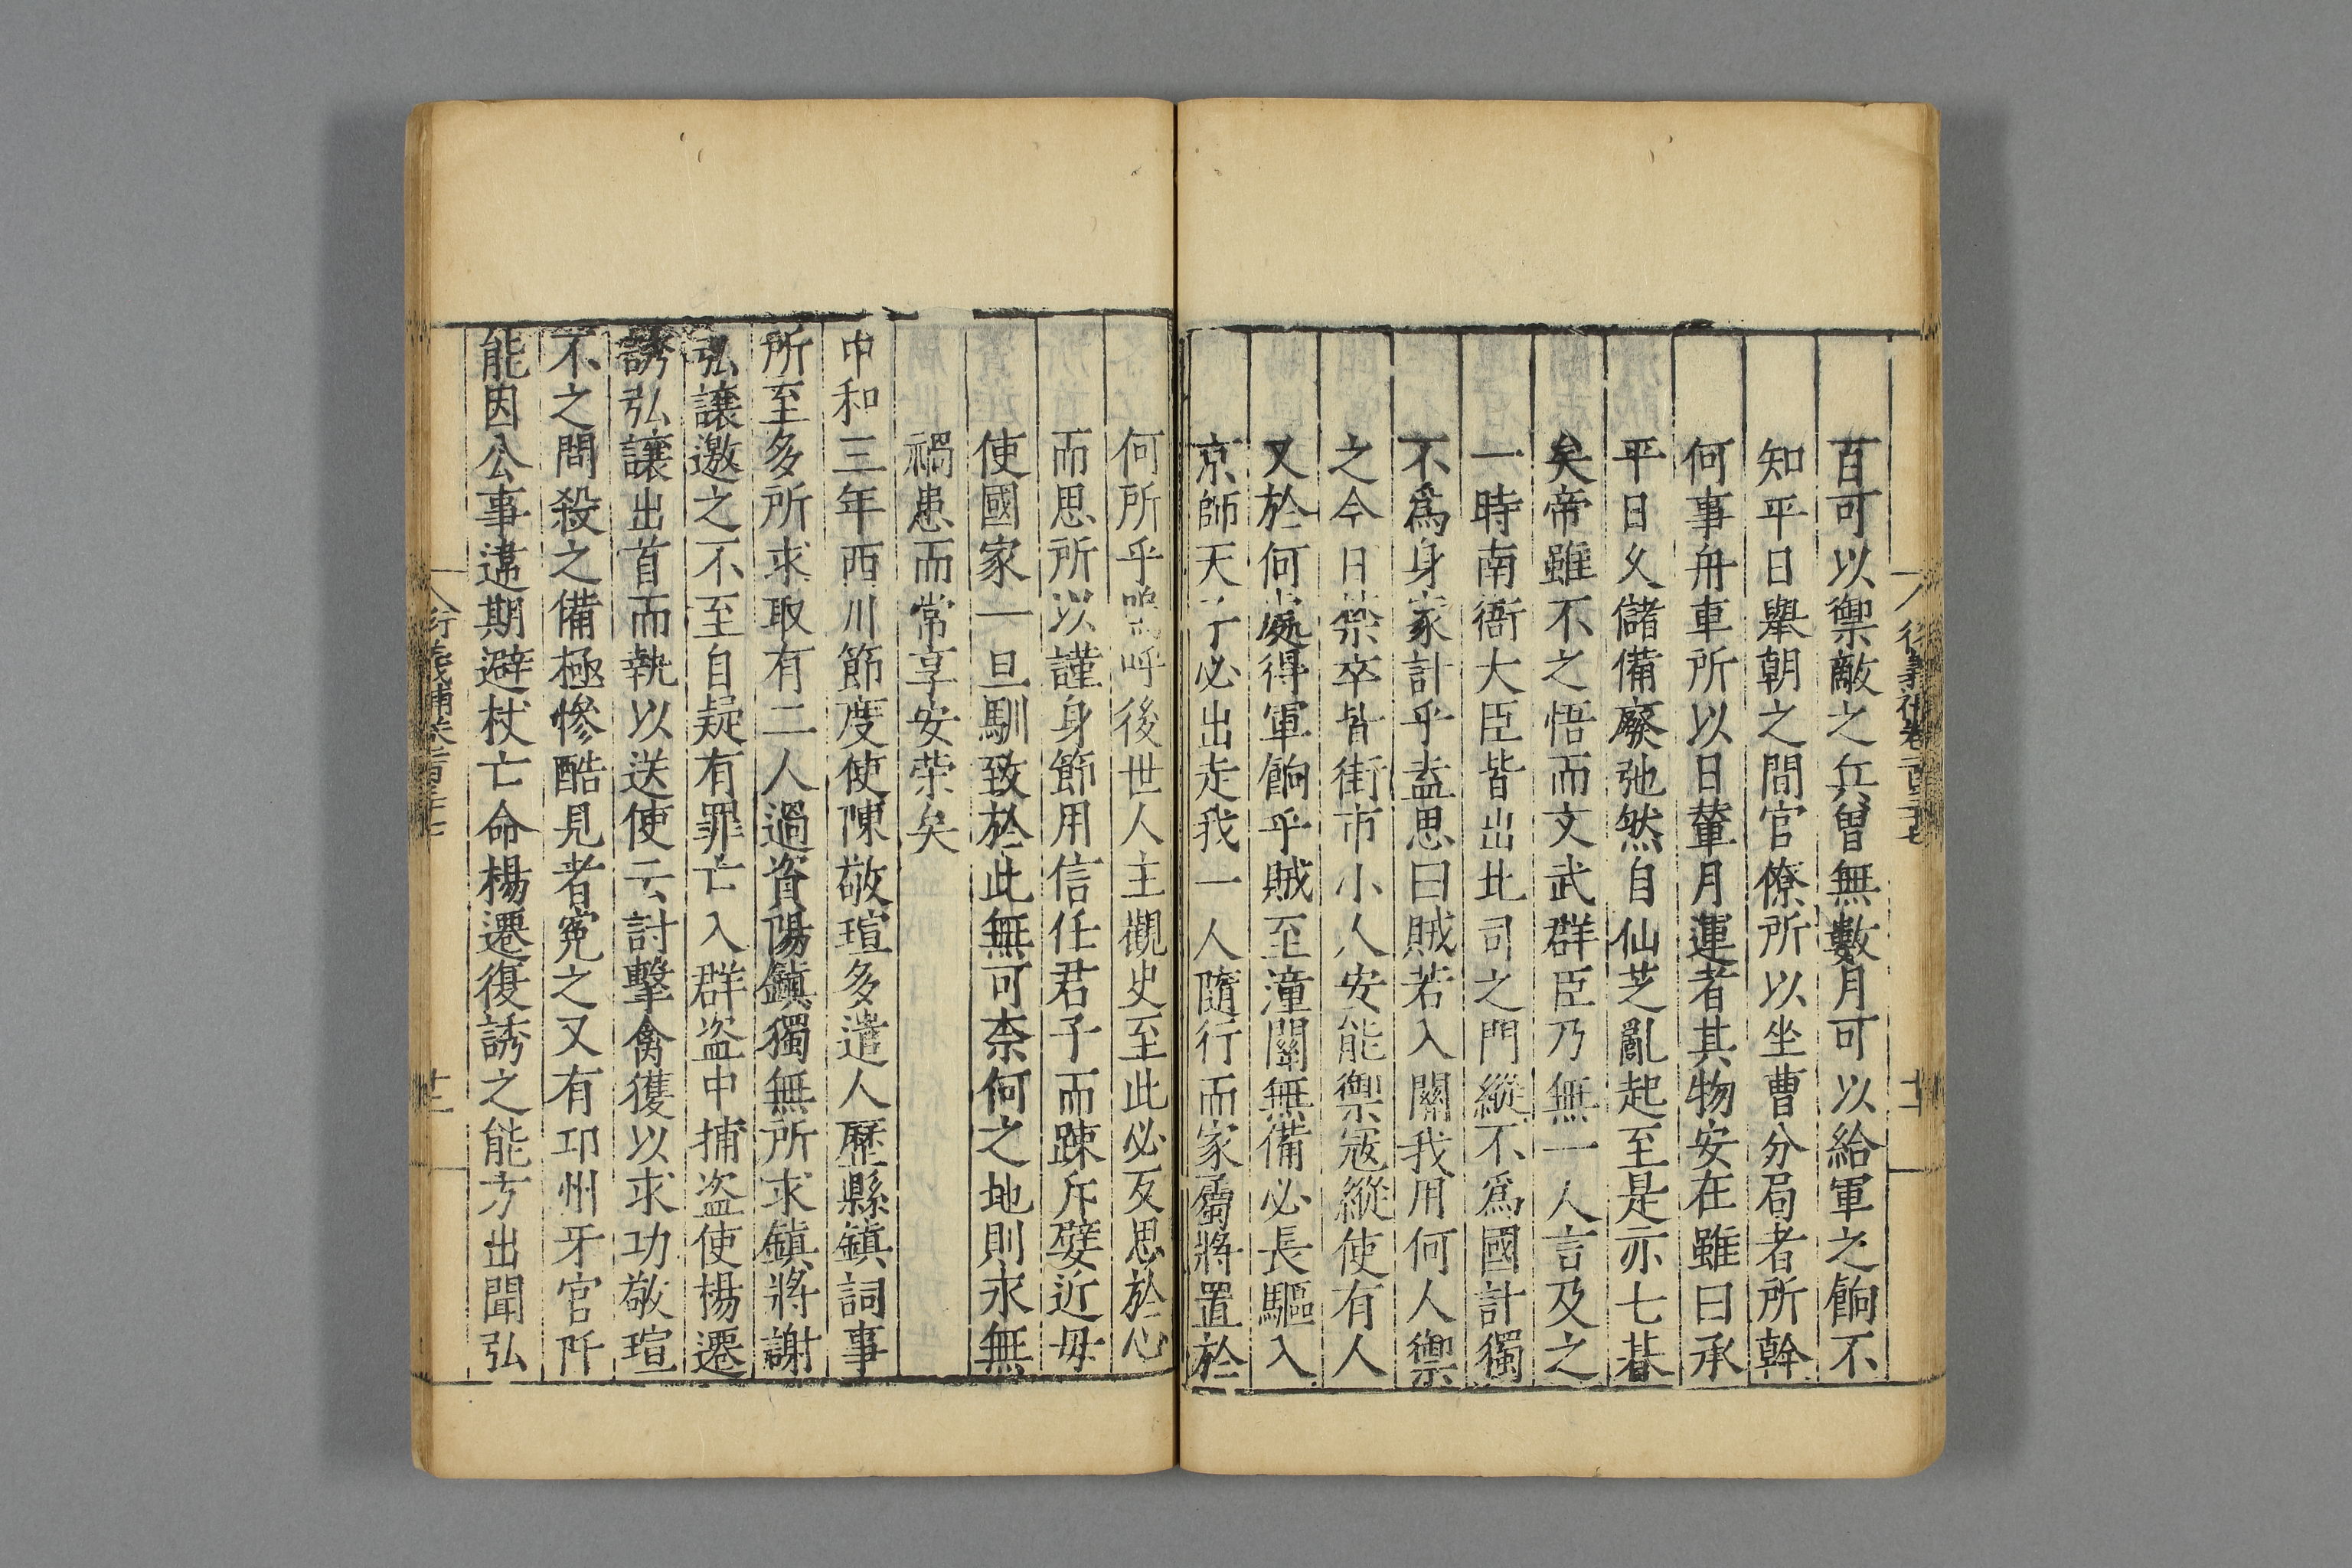 百可以禦敵之兵曾無數月可以給軍之餉不
知平日舉朝之間官僚所以坐曹分局者所幹
何事舟車所以日輦月運者其物安在雖曰承
平日久儲備廢弛然自仙芝亂起至是亦七朞
矣帝雖不之悟而文武群臣乃無一人言及之
一時南衙大臣皆出北司之門縱不爲國計獨
不爲身家計乎盍思曰賊若入關我用何人禦
之今日禁卒皆街市小人安能禦寇縱使有人
又於何處得軍餉乎賊至潼關無備必長驅入
京師天子必出走我一人隨行而家屬將置於
何所乎嗚呼後世人主觀史至此必反思於心
而思所以謹身節用信任君子而踈斥嬖近毋
使國家一旦馴致於此無可柰何之地則永無
禍患而常享安荣矣
中和三年西川節度使陳敬瑄多遣人歷縣鎮詞事
所至多所求取有二人過資陽鎮獨無所求鎮將謝
弘讓邀之不至自疑有罪亡入群盗中捕盗使楊遷
誘弘讓出首而執以送使云討擊禽獲以求功敬瑄
不之問殺之備極慘酷見者寃之又有邛州牙官阡
能因公事違期避杖亡命楊遷復誘之能方出聞弘